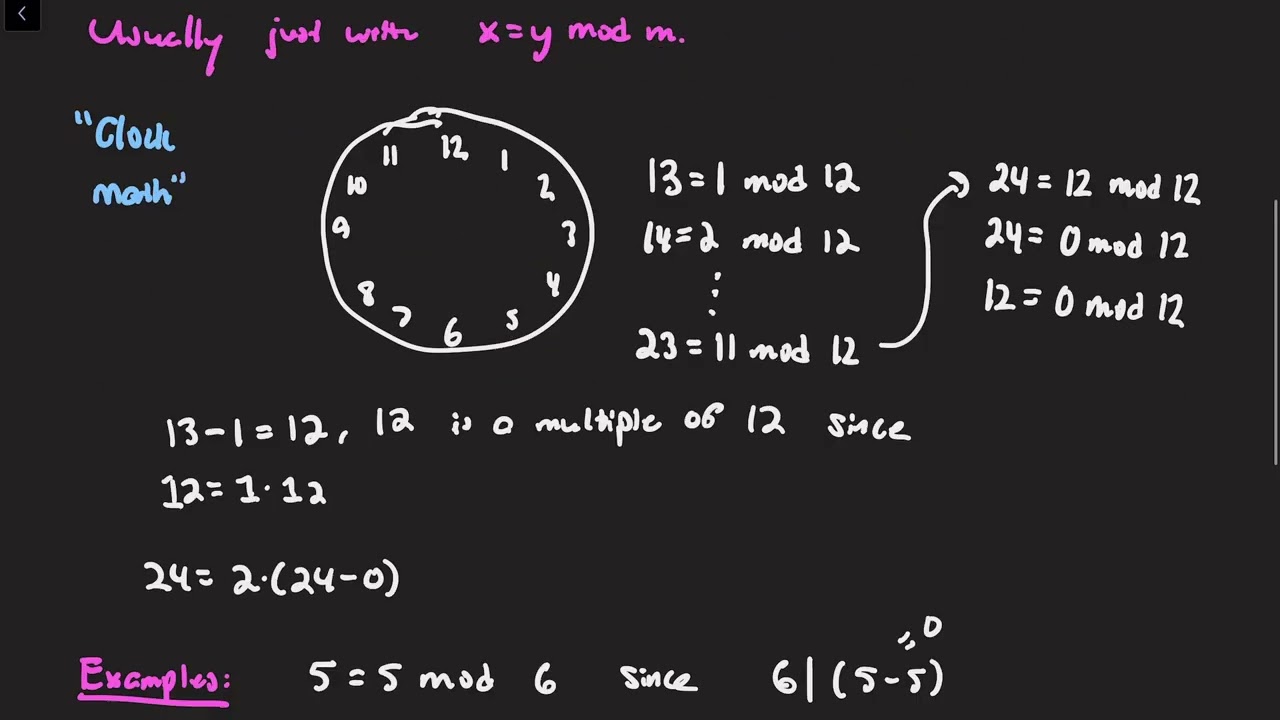 Usually just write x = y mod m.
"Clock
math"
12
1
2
3
4
5
6
7
8
9
10
11
13 = 1 mod 12
14 = 2 mod 12
⋮
23 = 11 mod 12
24 = 12 mod 12
24 = 0 mod 12
12 = 0 mod 12
13 - 1 = 12, 12 is a multiple of 12 since
12 = 1 · 12
24 = 2 · (24 - 0)
Examples: 5 = 5 mod 6 since 6 | (5 - 5)
= 0